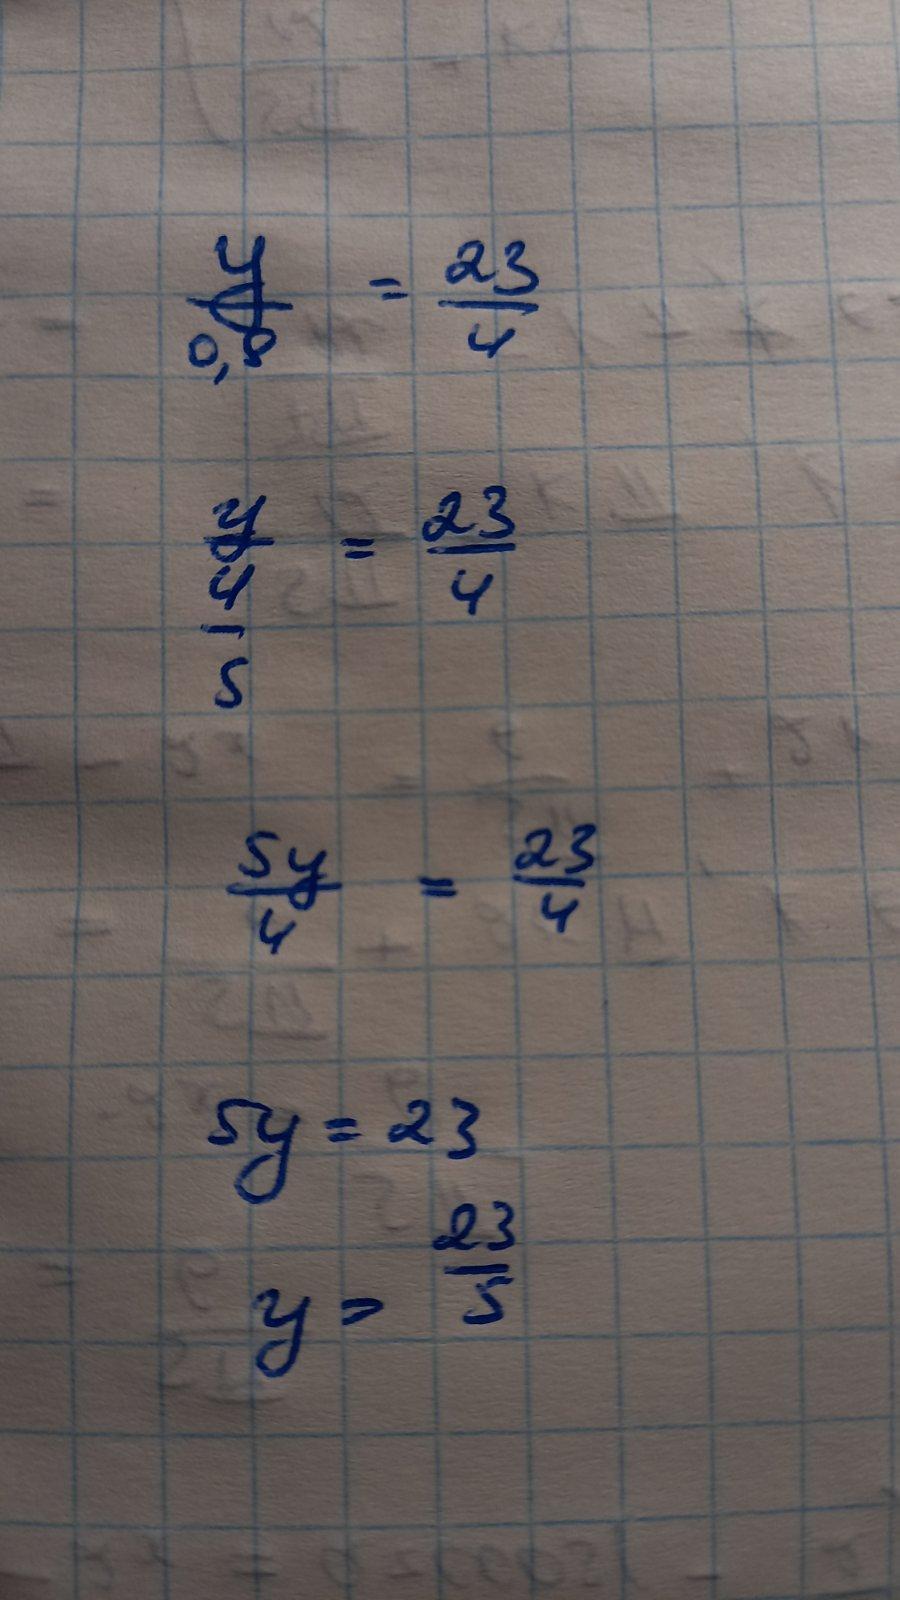 y/0,8 = 23/4
y/4/5 = 23/4
5y/4 = 23/4
5y = 23
y = 23/5